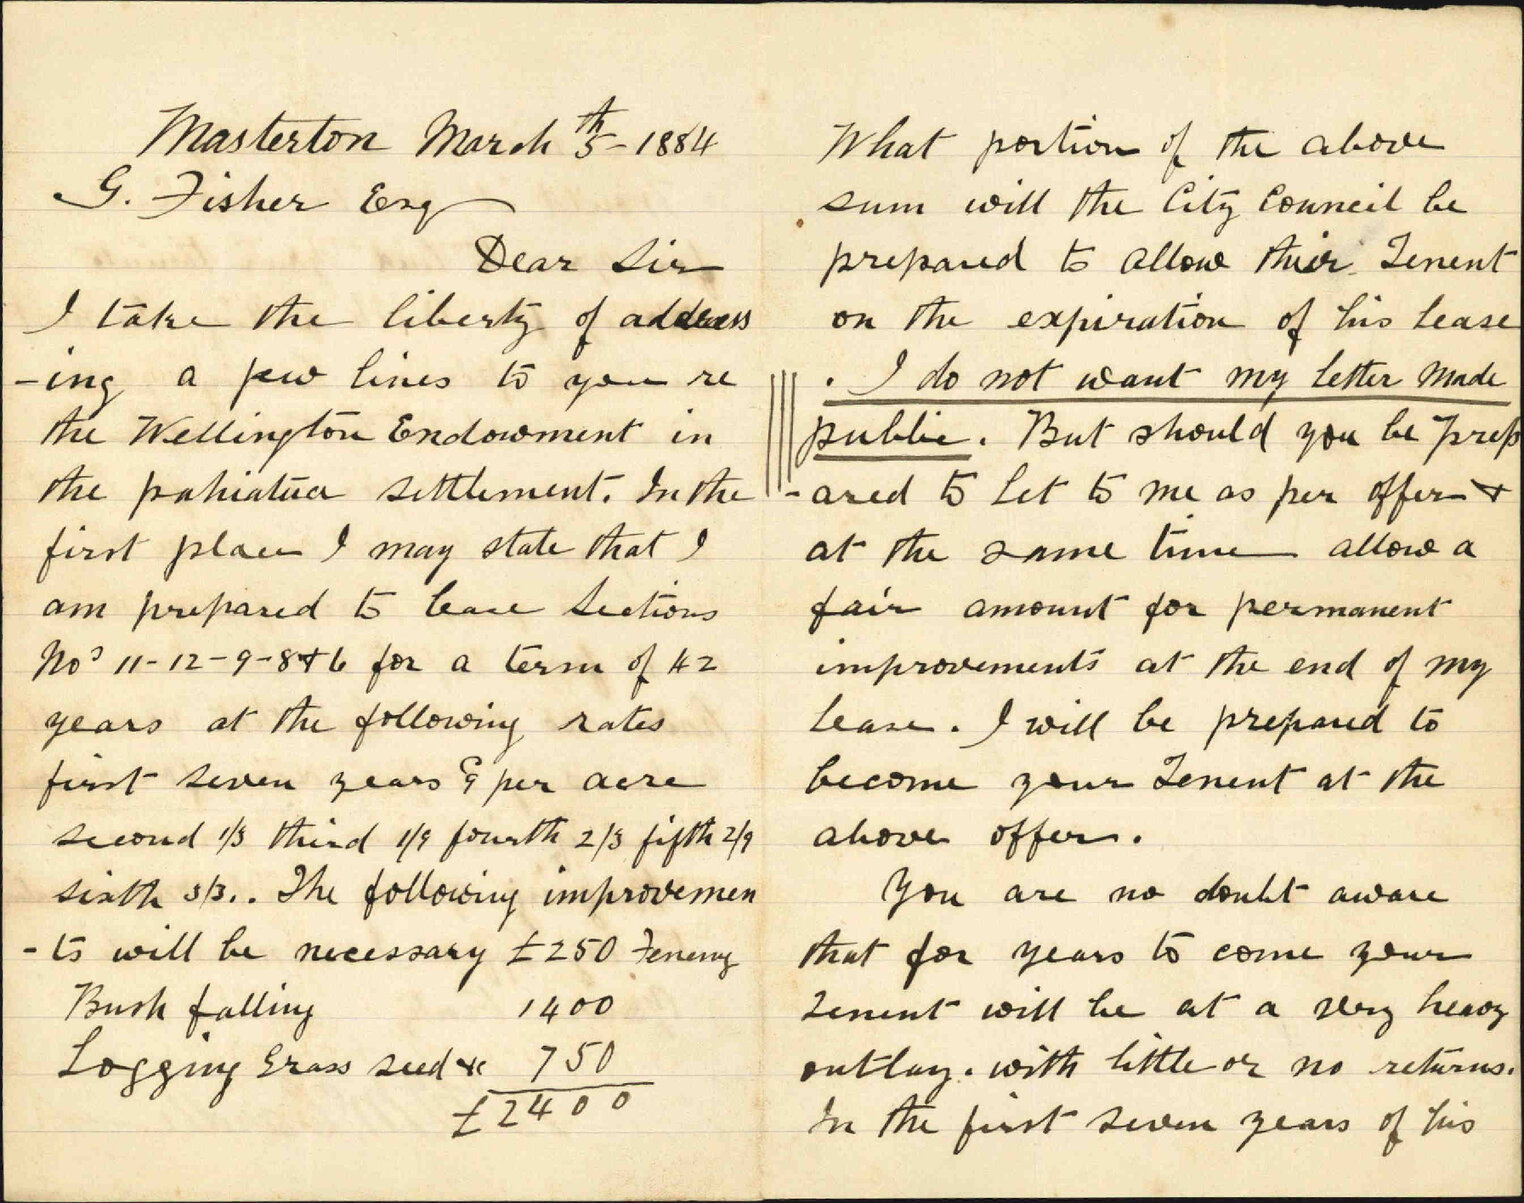 Masterton March 5th - 1884
G. Fisher Esq
Dear Sir
I take the liberty of address
-ing a few lines to you re
the Wellington Endowment in
the pahiatua settlement. In the
first place I may state that I
am prepared to lease Sections
Nos 11-12-9-8&6 for a term of 42
years at the following rates
first seven years 9 per acre
second 1/3 third 1/9 fourth 2/3 fifth 2/9
sixth 3/3.. The following improvemen
-ts will be necessary £250 Fencing
Bush falling 1400
Logging Grass seed &c 750
£2400
What portion of the above
sum will the City Council be
prepared to allow their Tenent
on the expiration of his lease
. I do not want my letter made
public. But should you be prep
-ared to let to me as per offer &
at the same time allow a
fair amount for permanent
improvements at the end of my
lease. I will be prepared to
become your Tenent at the
above offer.
You are no doubt aware
that for years to come your
Tenent will be at a very heavy
outlay. with little or no returns.
In the first seven years of his